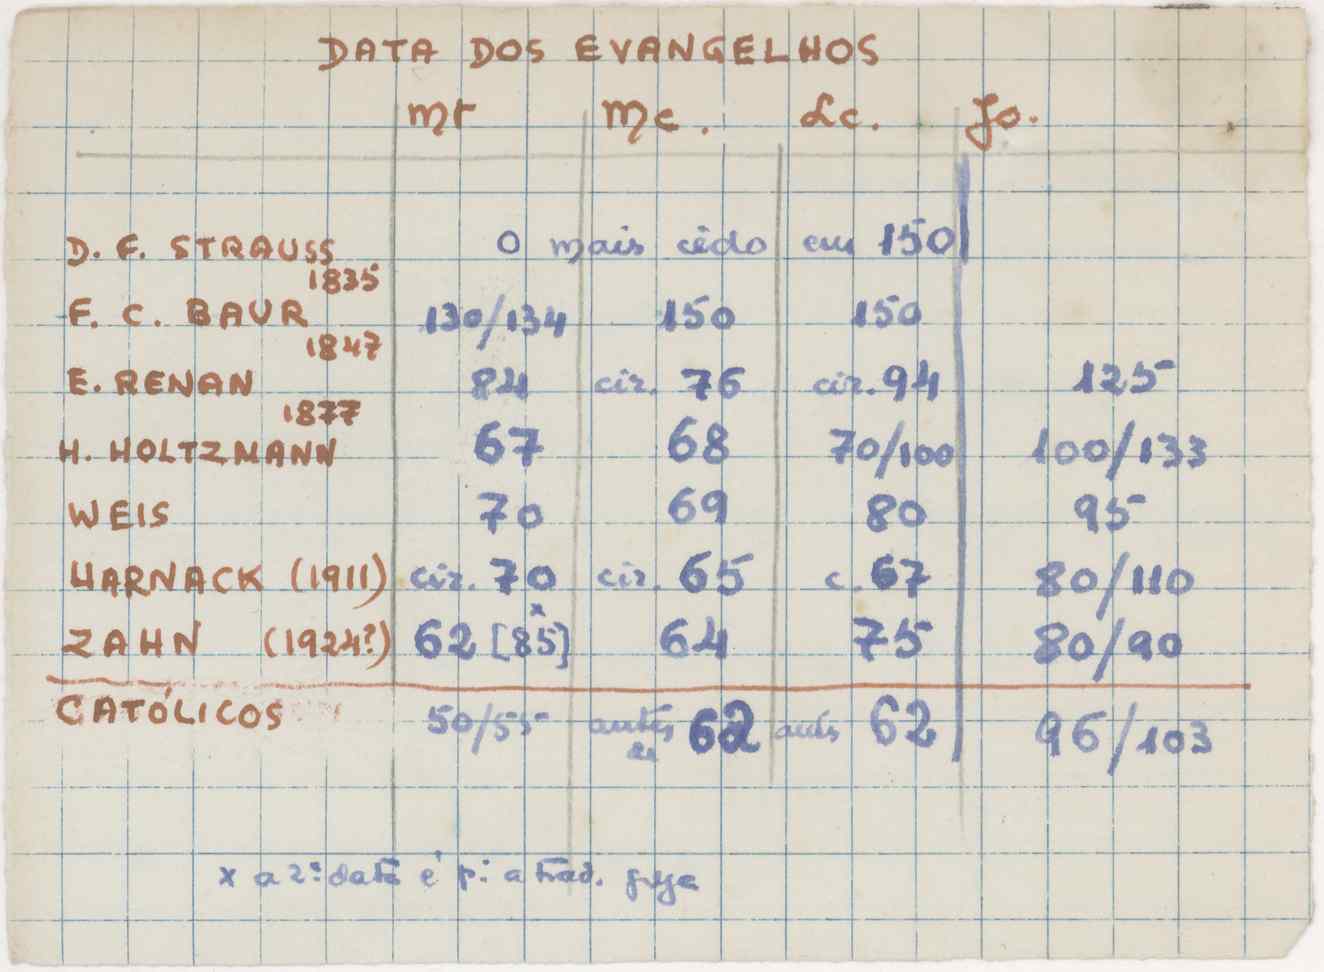 DATA DOS EVANGELHOS
Mt Mc. Lc. Jo.
D. F. STRAUSS O mais cêdo em 150
1835
F. C. BAUR 130/134 150 150
1847
E. RENAN 84 cir. 76 cir. 94 125
1877
H. HOLTZMANN 67 68 70/100 100/133
WEIS 70 69 80 95
HARNACK (1911) cir. 70 cir. 65 c. 67 80/110
x
ZAHN (1924?) 62 [85] 64 75 80/90
CATÓLICOS 50/55 antes 62 antes 62 96/103
de
x a 2ª data é p: a trad. grega